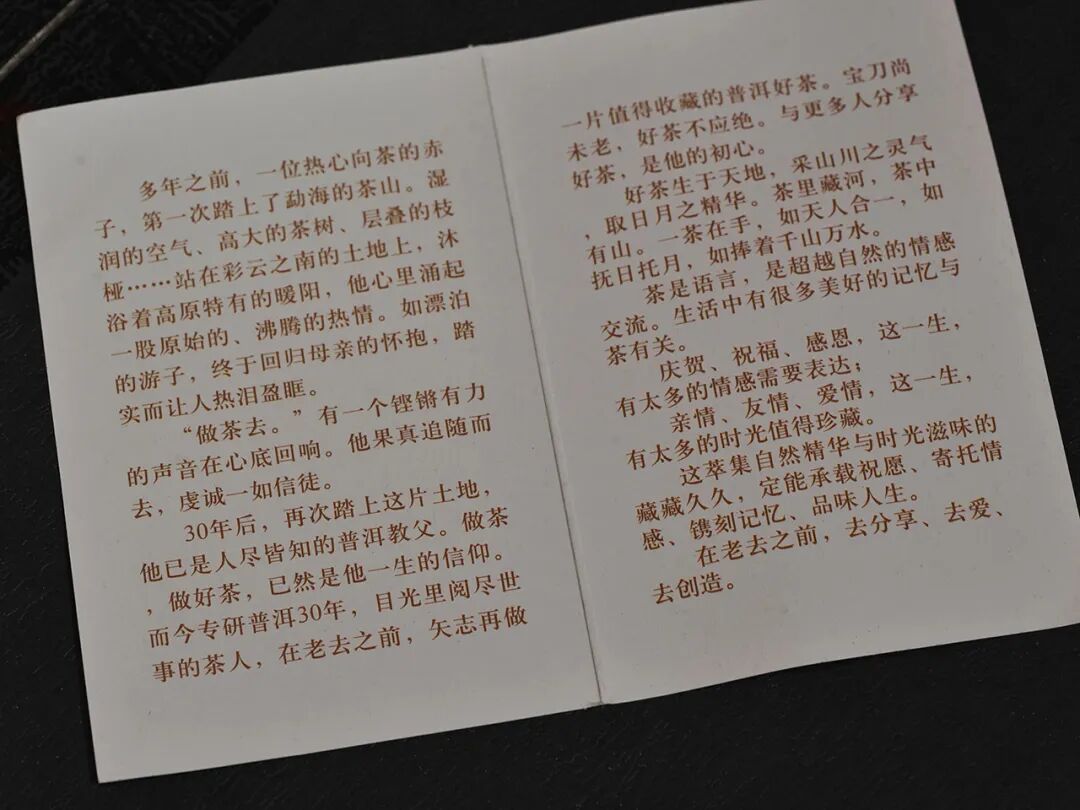 多年之前，一位热心向茶的赤
子，第一次踏上了勐海的茶山。湿
润的空气、高大的茶树、层叠的枝
桠……站在彩云之南的土地上，沐
浴着高原特有的暖阳，他心里涌起
一股原始的、沸腾的热情。如漂泊
的游子，终于回归母亲的怀抱，踏
实而让人热泪盈眶。
“做茶去。”有一个铿锵有力
的声音在心底回响。他果真追随而
去，虔诚一如信徒。
30年后，再次踏上这片土地，
他已是人尽皆知的普洱教父。做茶
，做好茶，已然是他一生的信仰。
而今专研普洱30年，目光里阅尽世
事的茶人，在老去之前，矢志再做
一片值得收藏的普洱好茶。宝刀尚
未老，好茶不应绝。与更多人分享
好茶，是他的初心。
好茶生于天地，采山川之灵气
，取日月之精华。茶里藏河，茶中
有山。一茶在手，如天人合一，如
抚日托月，如捧着千山万水。
茶是语言，是超越自然的情感
交流。生活中有很多美好的记忆与
茶有关。
庆贺、祝福、感恩，这一生，
有太多的情感需要表达；
亲情、友情、爱情，这一生，
有太多的时光值得珍藏。
这萃集自然精华与时光滋味的
藏藏久久，定能承载祝愿、寄托情
感、镌刻记忆、品味人生。
在老去之前，去分享、去爱、
去创造。